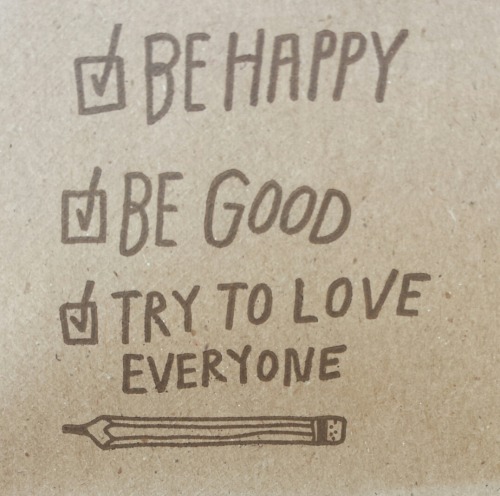 BE HAPPY
BE GOOD
TRY TO LOVE
EVERYONE